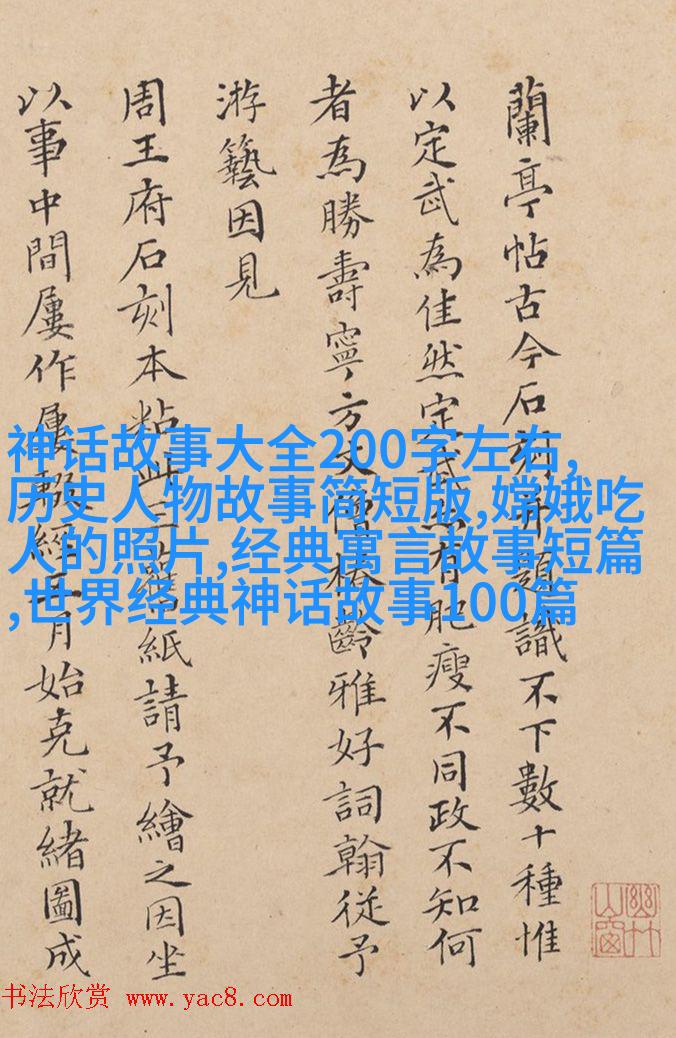 蘭亭帖古今石刻并題識不下數十種惟
以定武為佳然定武亦有肥瘦不同政不知何
者為勝壽寧方丈僧椿齡雅好詞翰從予
游藝因見
周王府石刻本粘紙請予繪之因坐
以事中間屢作屢輟經五月始克就緒圖成
幽竹山窗
神话故事大全200字左右,
历史人物故事简短版,嫦娥吃
人的照片,经典寓言故事短篇
,世界经典神话故事100篇
书法欣赏 www.yac8.com